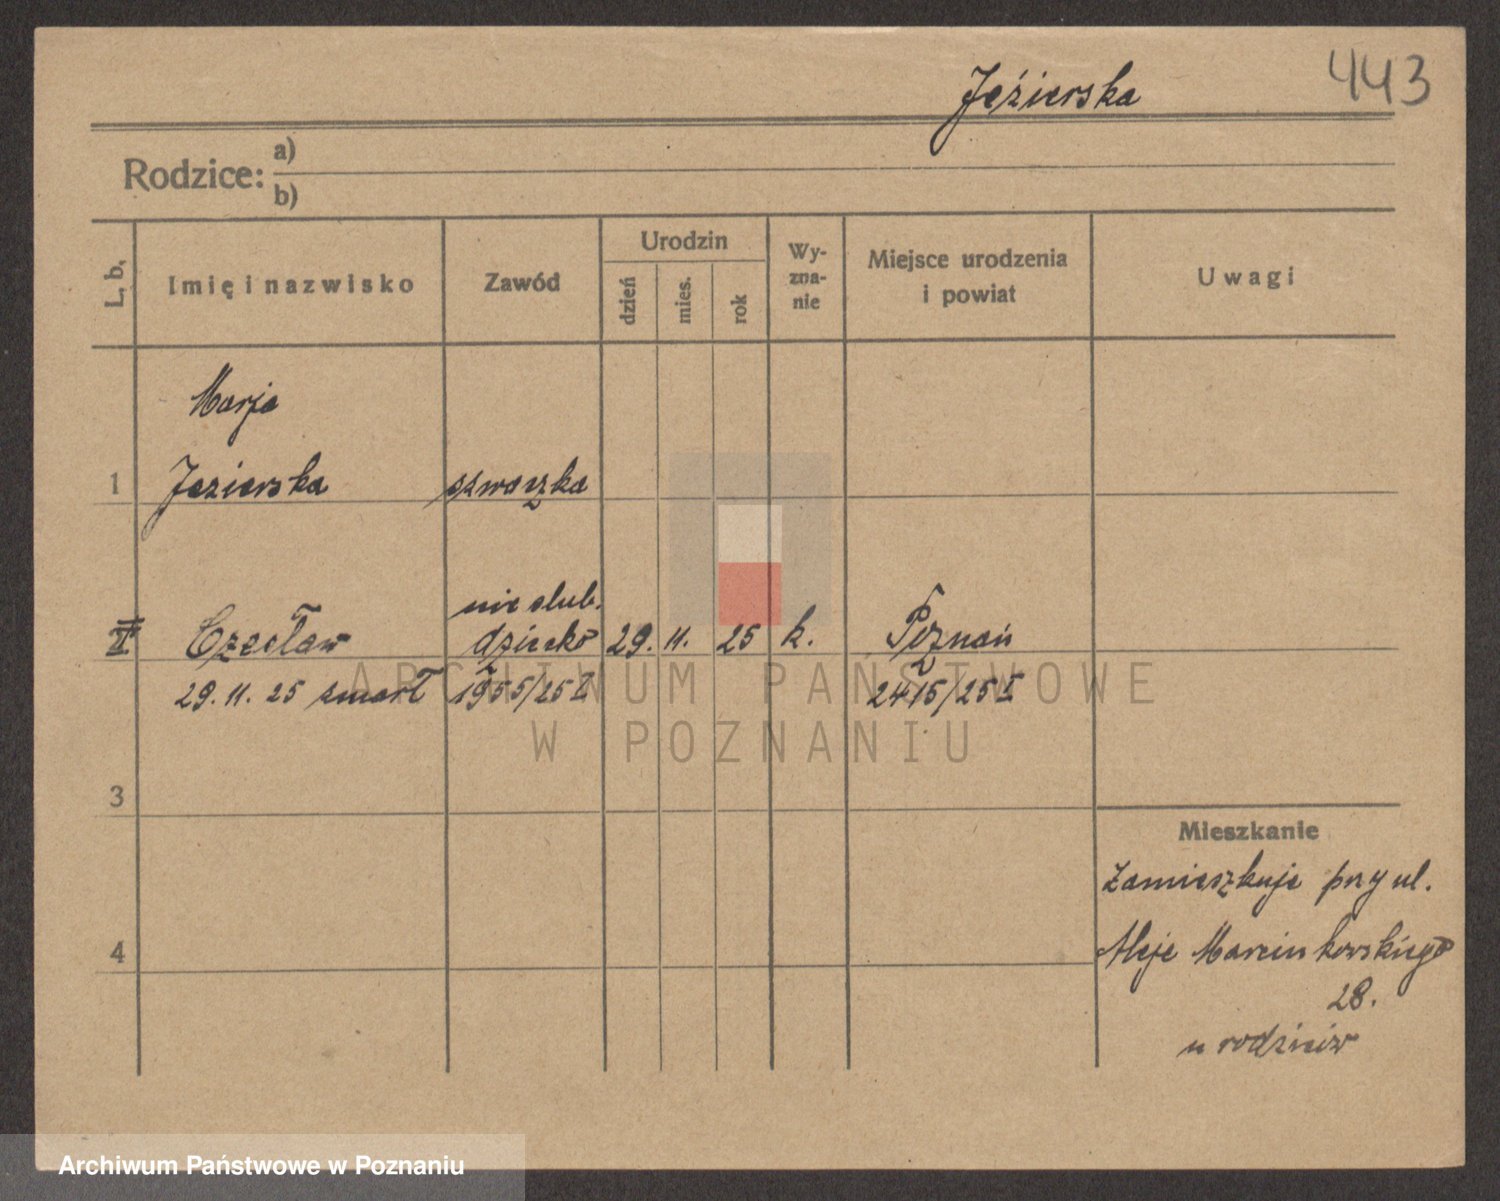 443
Jeźierska
Rodzice: a)
b)
L. b. Imię i nazwisko Zawód Urodzin dzień mies. rok Wy-zna-nie Miejsce urodzenia i powiat Uwagi
Marja
1 Jezierska szwaczka
nie slub.
Czesław dziecko 29. 11. 25 k. Poznań
29. 11. 25 zmarł 1955/25 I 2415/25 I
ARCHIWUM PAŃSTWOWE
W POZNANIU
3
Mieszkanie
Zamieszkuje przy ul.
4 Aleje Marcinkowskiego
28.
u rodziców
Archiwum Państwowe w Poznaniu